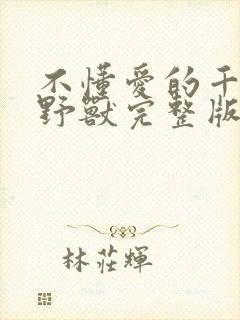 不懂愛的千
野獸完整版
林莊輝